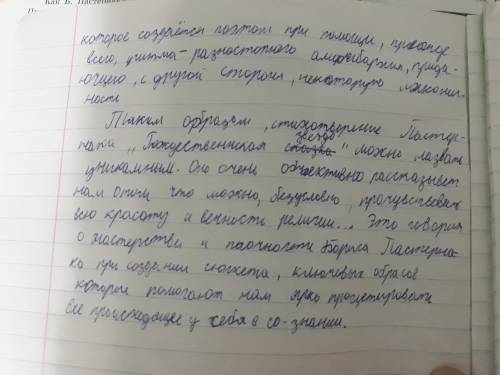 Как Б. Пастернак
которое создаётся поэтом при помощи, прежде
всего, ритма - разностопного амфибрахия, прида-
ющего, с другой стороны, некоторую лаконич-
ность
Таким образом, стихотворение Пастер-
нака "Рождественская звезда" можно назвать
уникальным. Оно очень объективно рассказывает
нам о том что можно, безусловно, прочувствовать
всю красоту и вечность религии... Это говорит
о мастерстве и Бориса Пастерна-
ка при создании сюжета, ключевых образов
которые помогают нам ярко
всё происходящее у себя в со-знании.